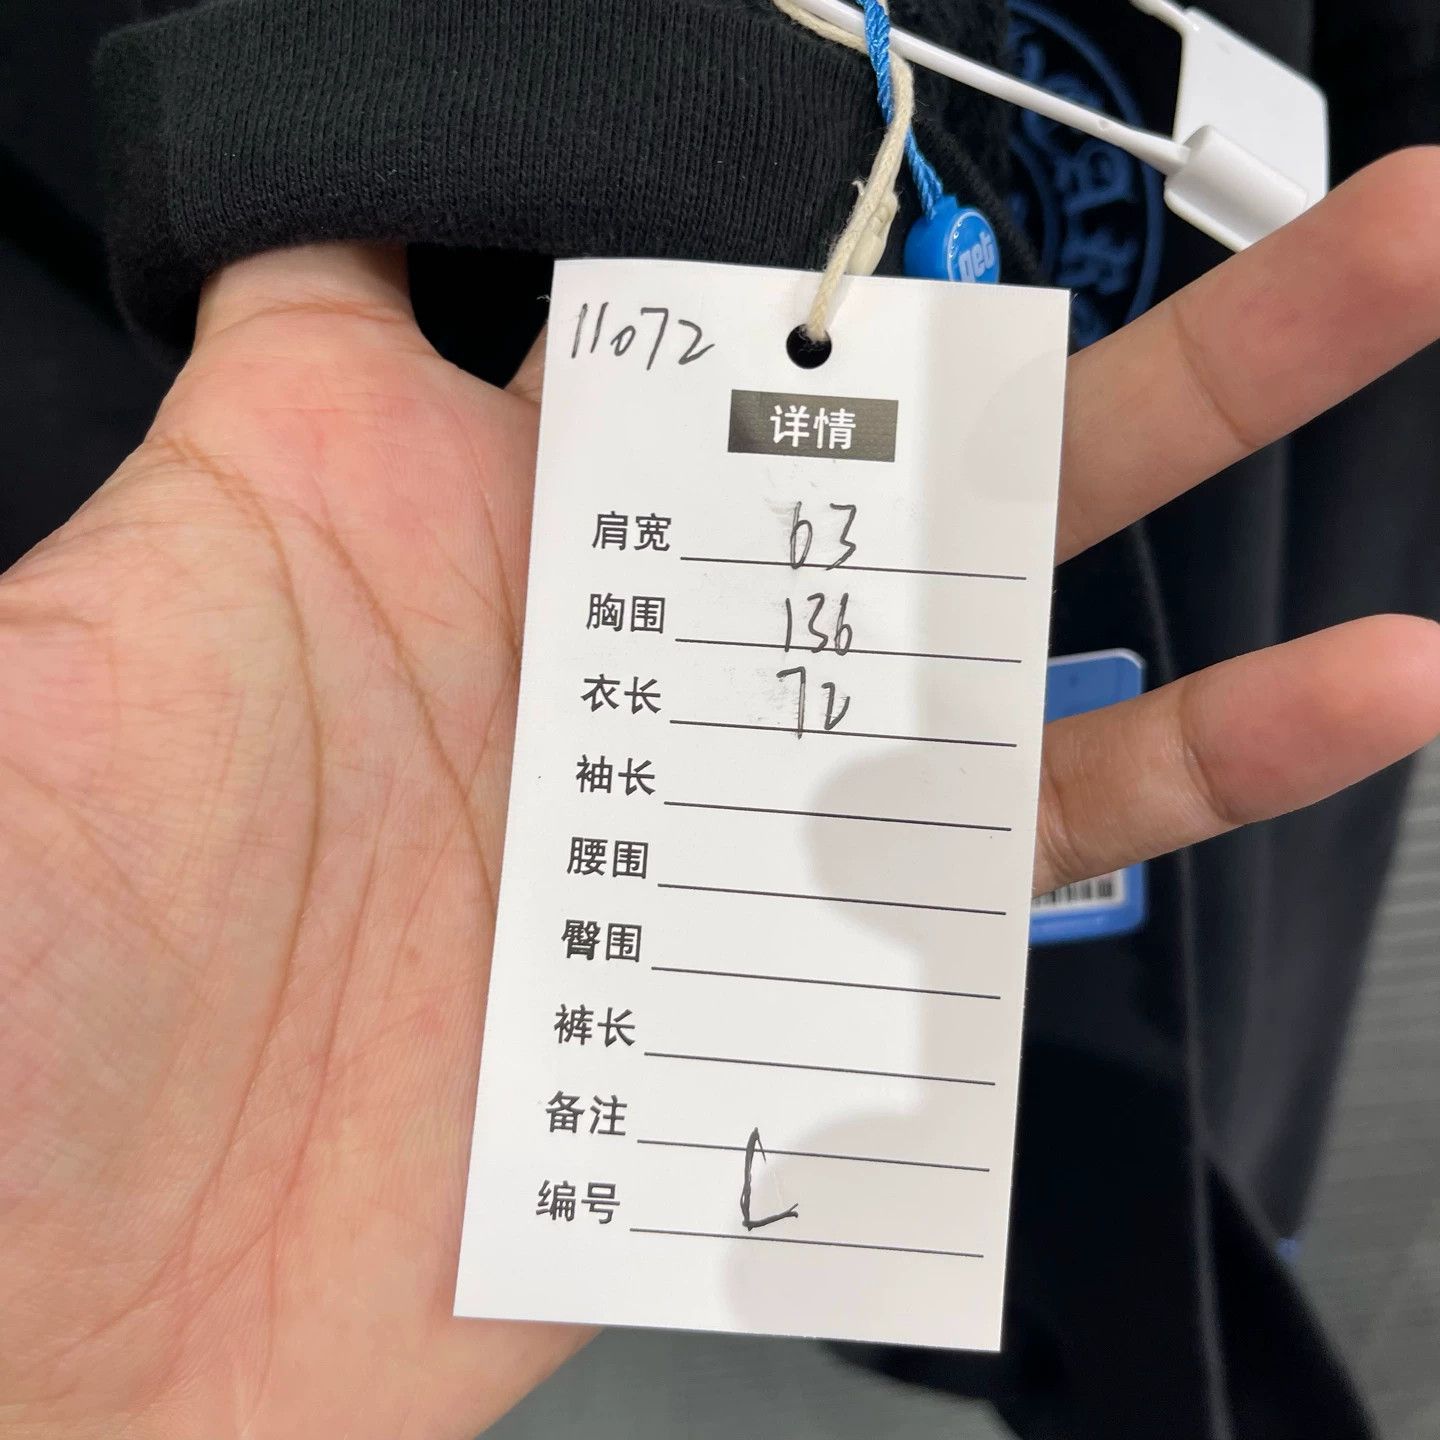 get
11072
详情
肩宽 63
胸围 136
衣长 72
袖长
腰围
臀围
裤长
备注
编号 L